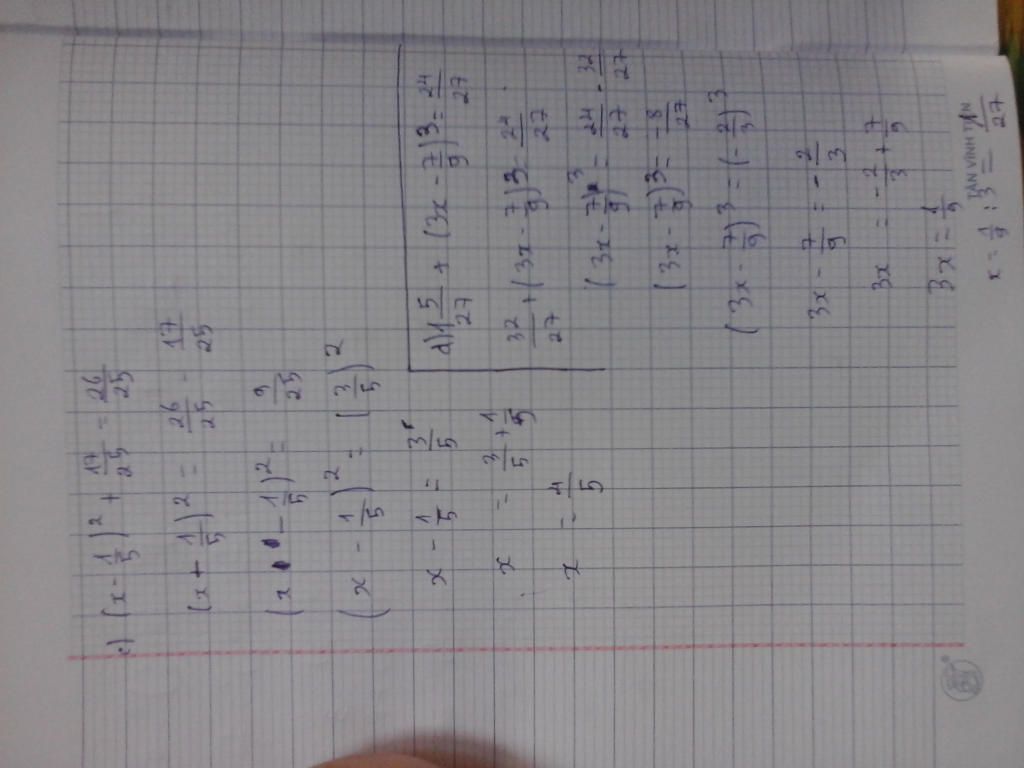 c) (x - 1/5)² + 17/25 = 26/25
(x + 1/5)² = 26/25 - 17/25
(x - 1/5)² = 9/25
(x - 1/5)² = (3/5)²
x - 1/5 = 3/5
x = 3/5 + 1/5
x = 4/5
d) 1 5/27 + (3x - 7/9)³ = 24/27
32/27 + (3x - 7/9)³ = 24/27
(3x - 7/9)³ = 24/27 - 32/27
(3x - 7/9)³ = -8/27
(3x - 7/9)³ = (-2/3)³
3x - 7/9 = -2/3
3x = -2/3 + 7/9
3x = 1/9
x = 1/9 : 3 = 1/27
TÂN VĨNH TIẾN